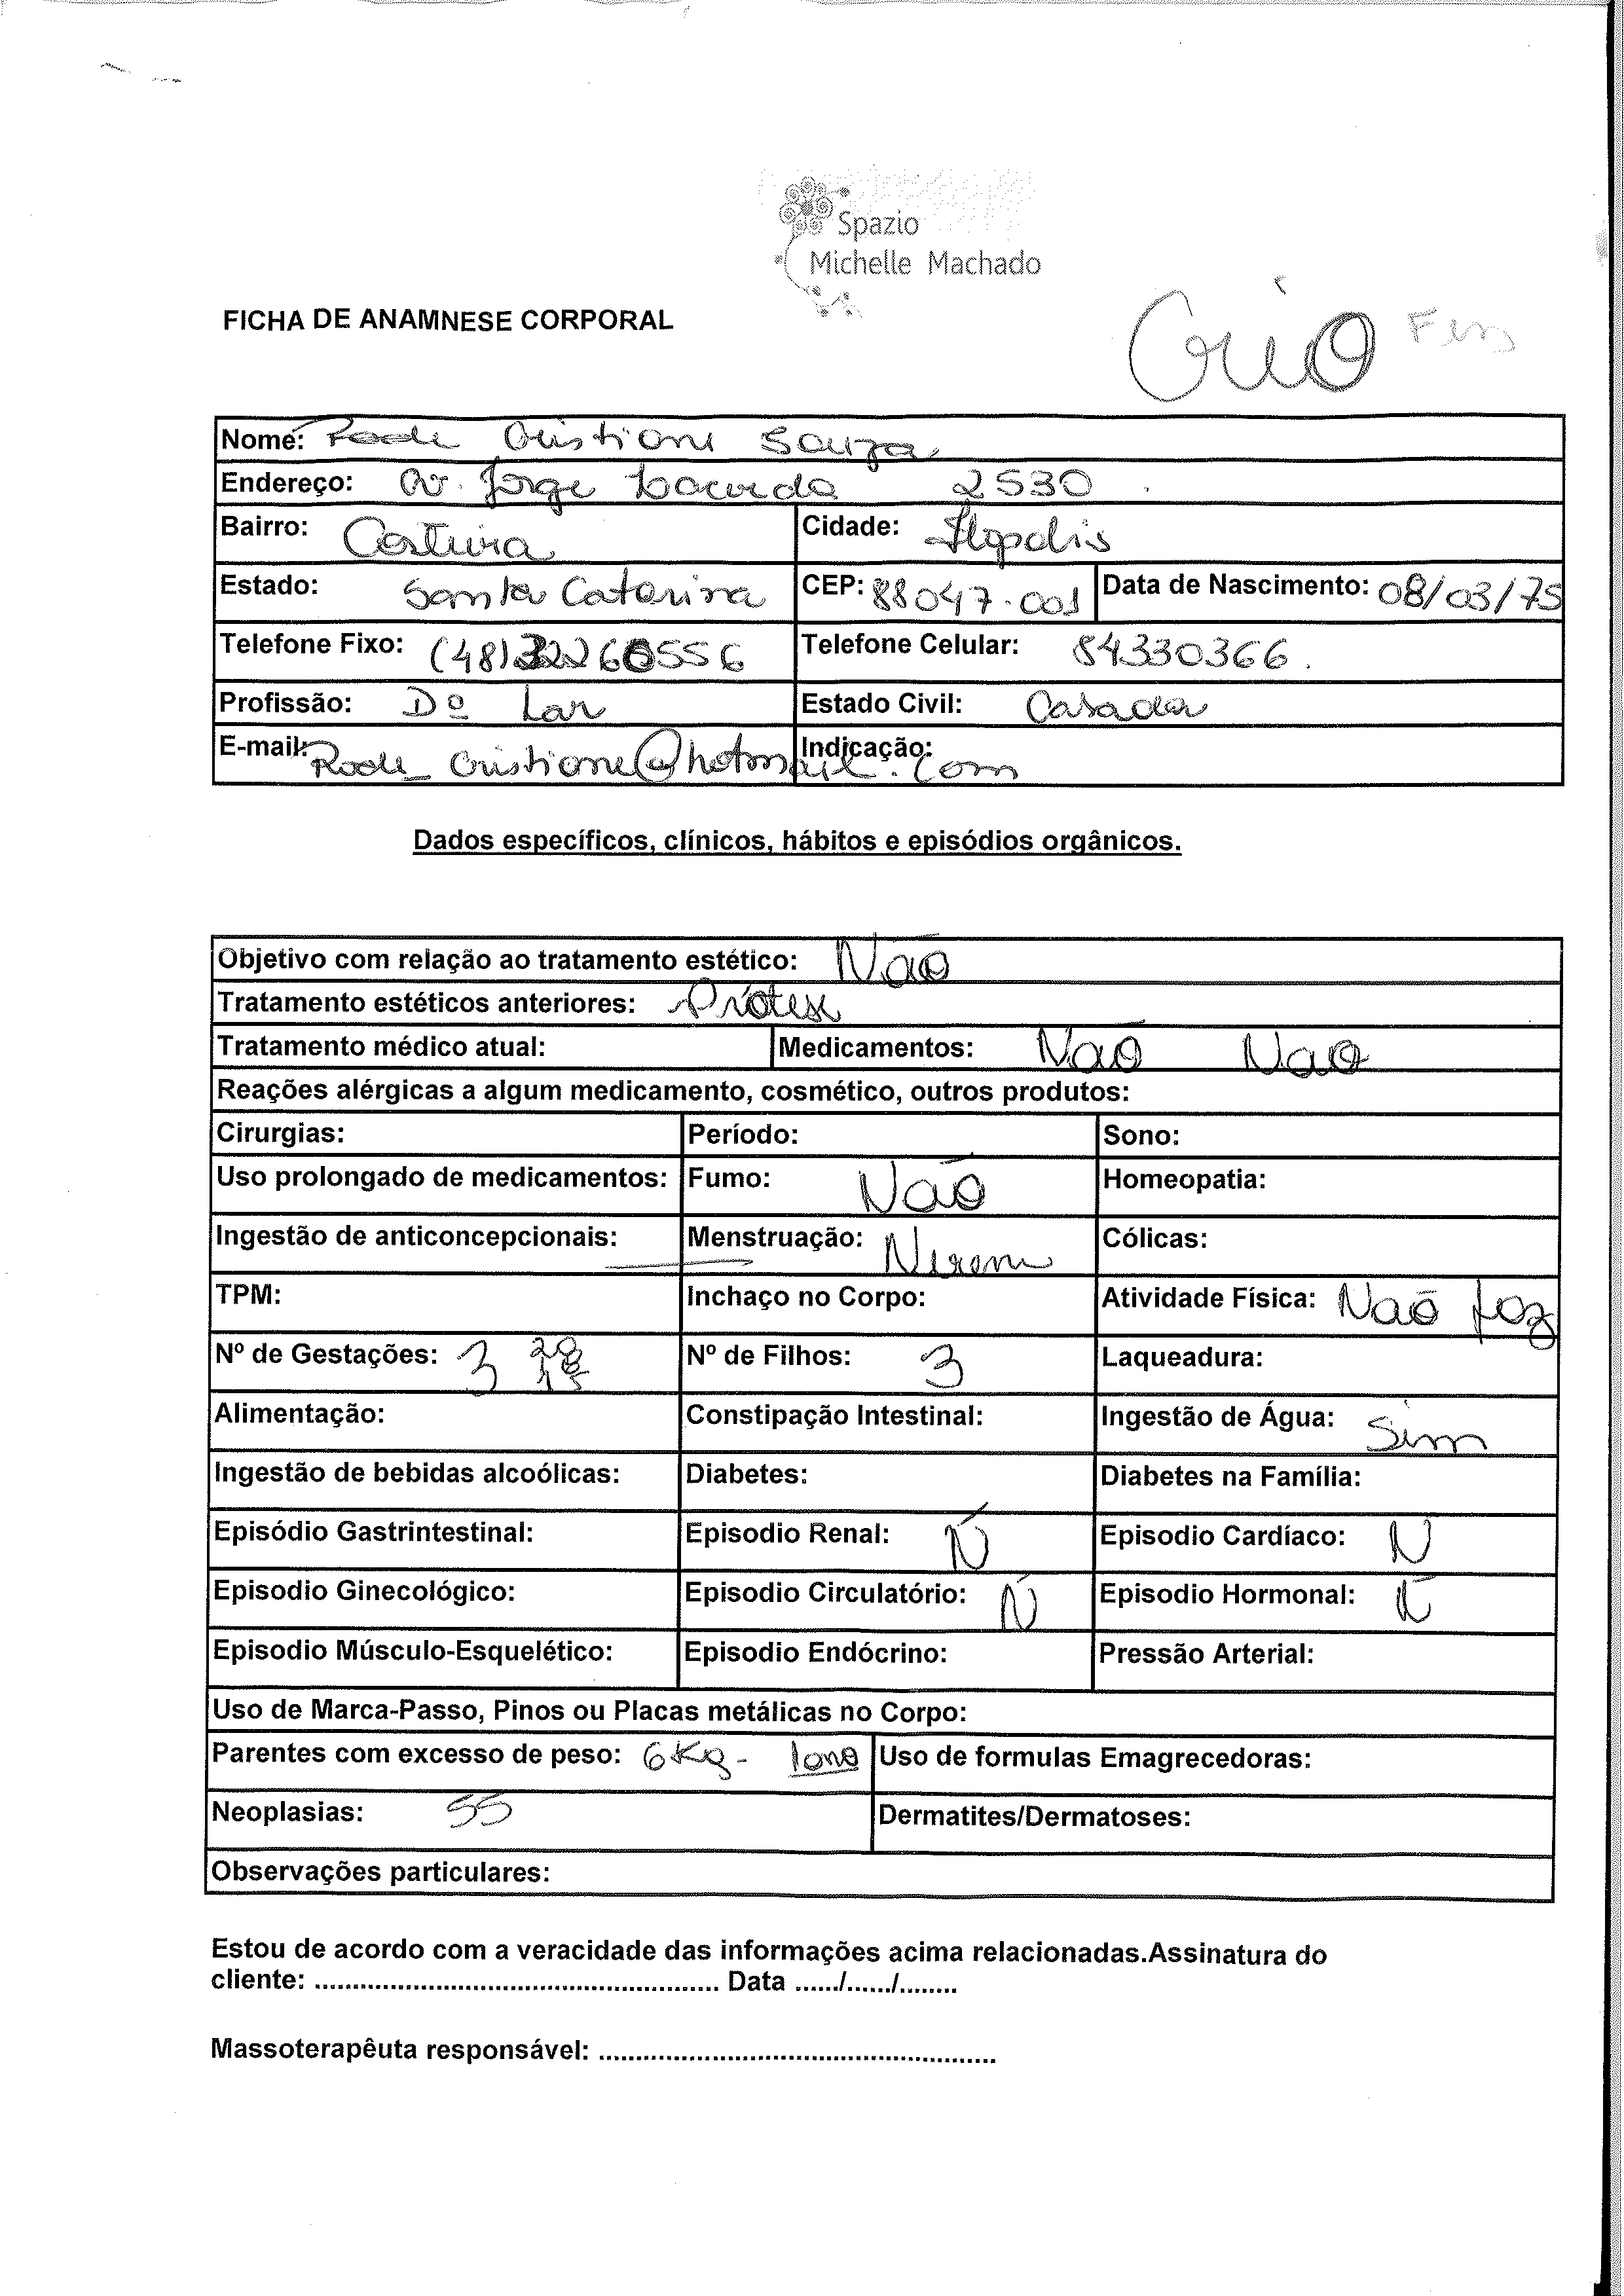 Spazio
Michelle Machado
FICHA DE ANAMNESE CORPORAL
Crio
Nome: Rode Cristiane Souza
Endereço: Av. Jorge Lacerda 2530
Bairro: Costeira Cidade: Flopolis
Estado: Santa Catarina CEP: 88047-001 Data de Nascimento: 08/03/75
Telefone Fixo: (48) 32260556 Telefone Celular: 84330366
Profissão: Dº Lar Estado Civil: Casada
E-mail: Rode_Cristiane@hotmail.com Indicação:
Dados específicos, clínicos, hábitos e episódios orgânicos.
Objetivo com relação ao tratamento estético: Não
Tratamento estéticos anteriores: Prótese
Tratamento médico atual: Medicamentos: Não Nao
Reações alérgicas a algum medicamento, cosmético, outros produtos:
Cirurgias: Período: Sono:
Uso prolongado de medicamentos: Fumo: Não Homeopatia:
Ingestão de anticoncepcionais: Menstruação: Cólicas:
TPM: Inchaço no Corpo: Atividade Física: Não faz
Nº de Gestações: 3 20 18 15 Nº de Filhos: 3 Laqueadura:
Alimentação: Constipação Intestinal: Ingestão de Água: Sim
Ingestão de bebidas alcoólicas: Diabetes: Diabetes na Família:
Episódio Gastrintestinal: Episodio Renal: Ñ Episodio Cardíaco: N
Episodio Ginecológico: Episodio Circulatório: Ñ Episodio Hormonal: Ñ
Episodio Músculo-Esquelético: Episodio Endócrino: Pressão Arterial:
Uso de Marca-Passo, Pinos ou Placas metálicas no Corpo:
Parentes com excesso de peso: 6Kg - 1ano Uso de formulas Emagrecedoras:
Neoplasias: 55 Dermatites/Dermatoses:
Observações particulares:
Estou de acordo com a veracidade das informações acima relacionadas.Assinatura do
cliente: ...................................................... Data ....../....../........
Massoterapêuta responsável: .....................................................